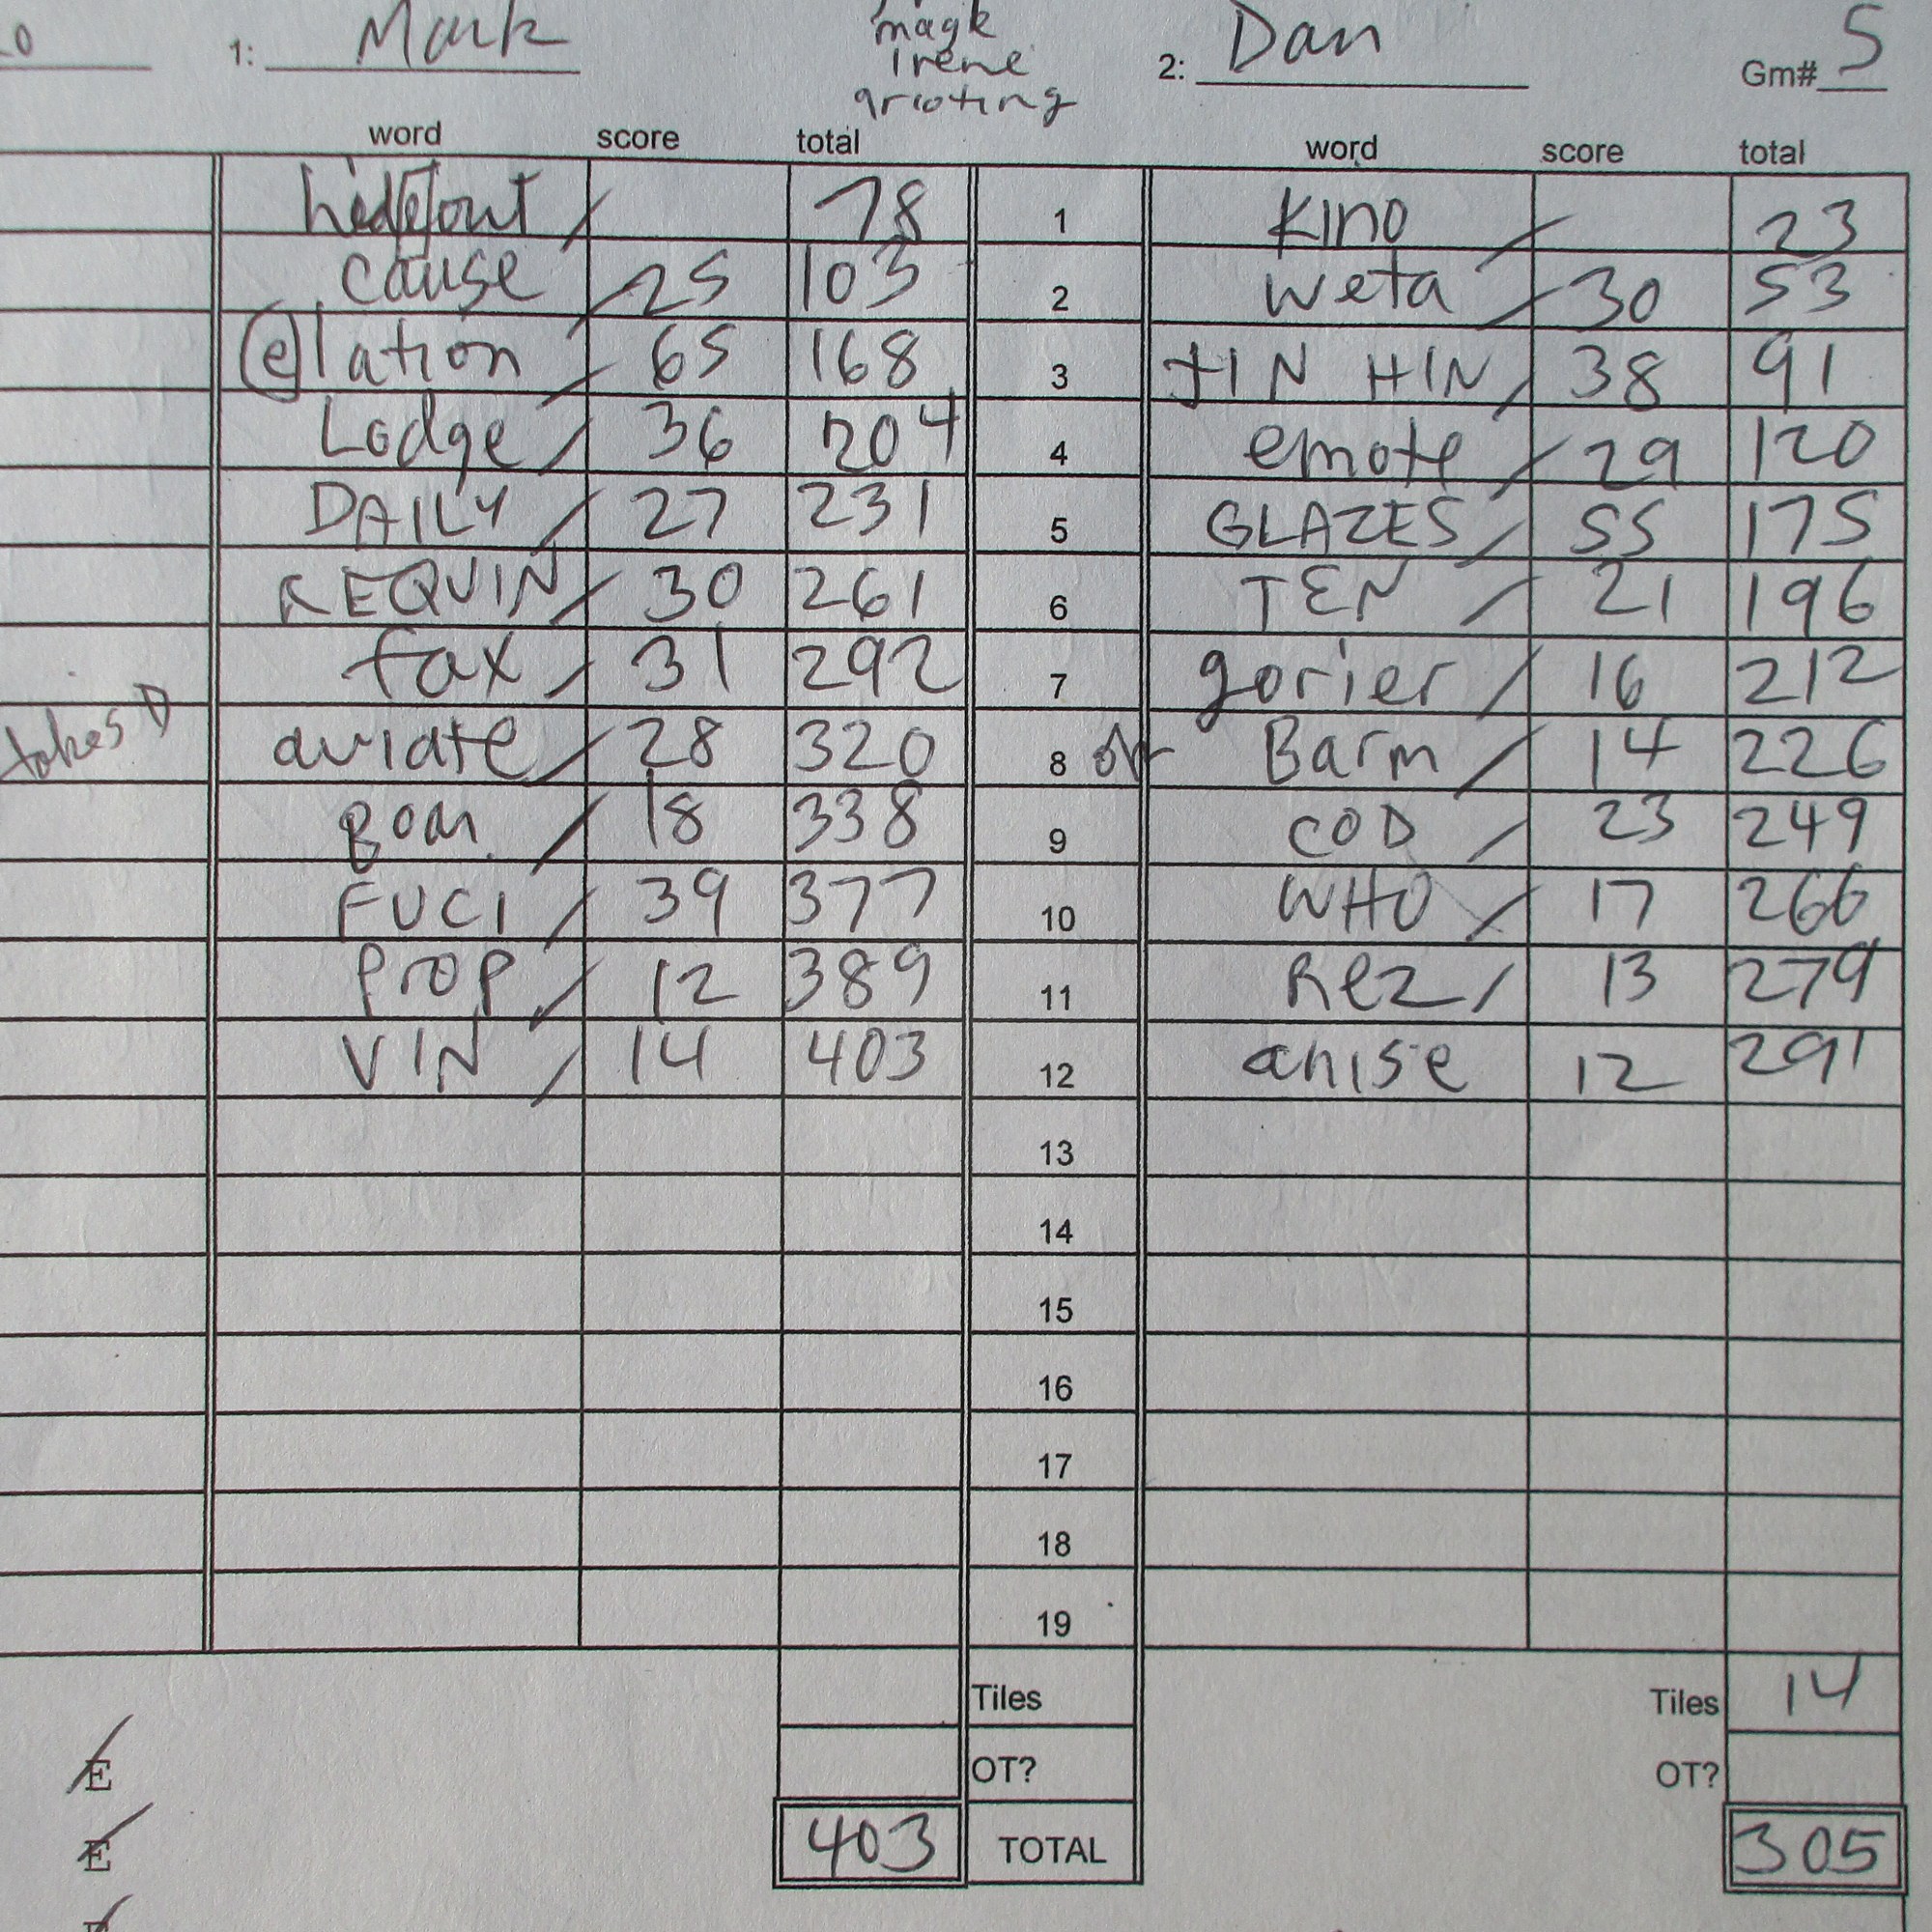 magk
1: Mark Irene 2: Dan Gm# 5
word score total word score total
hideout 78 1 KINO 23
cause 25 103 2 weta 30 53
elation 65 168 3 HIN HIN 38 91
Lodge 36 204 4 emote 29 120
DAILY 27 231 5 GLAZES 55 175
REQUIN 30 261 6 TEN 21 196
fax 31 292 7 gorier 16 212
takes D aviate 28 320 8 Barm 14 226
18 338 9 COD 23 249
FUCI 39 377 10 WHO 17 266
Prop 12 389 11 Rez 13 279
VIN 14 403 12 anise 12 291
13
14
15
16
17
18
19
Tiles Tiles 14
E OT? OT?
E 403 TOTAL 305